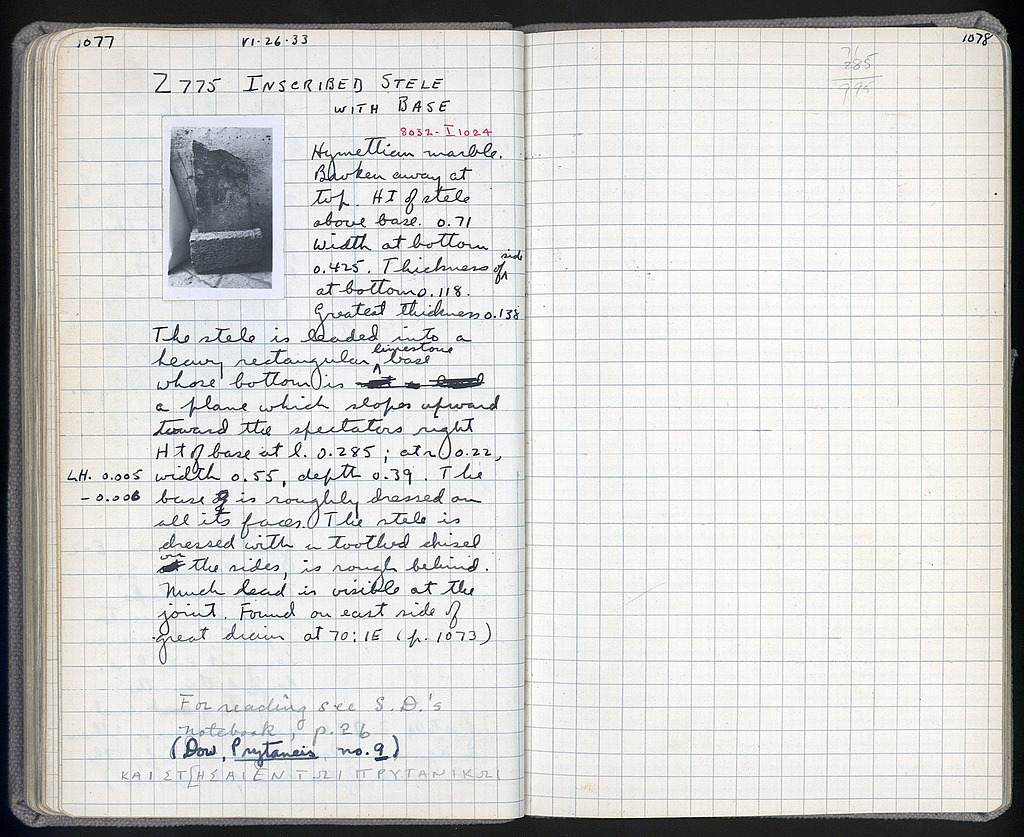 1077
VI-26-33
Z 775 INSCRIBED STELE
WITH BASE
8032- I 1024
Hymettian marble.
Broken away at
top. HT of stele
above base. 0.71
Width at bottom
0.425. Thickness of side
at bottom 0.118.
Greatest thickness 0.138
The stele is leaded into a
heavy rectangular limestone base
whose bottom is
a plane which slopes upward
toward the spectators right
Ht of base at l. 0.285; at r. 0.22,
LH. 0.005 width 0.55, depth 0.39. The
- 0.006 base is roughly dressed on
all its faces. The stele is
dressed with a toothed chisel
on the sides, is rough behind.
Much lead is visible at the
joint. Found on east side of
great drain at 70:ΙΕ (p. 1073)
For reading see S. D.'s
notebook, p. 26
(Dow, Prytaneis, no. 9)
ΚΑΙ ΣΤΗΣΑΙ ΕΝ ΤΩΙ ΠΡΥΤΑΝΙΚΩΙ
1078
71
285